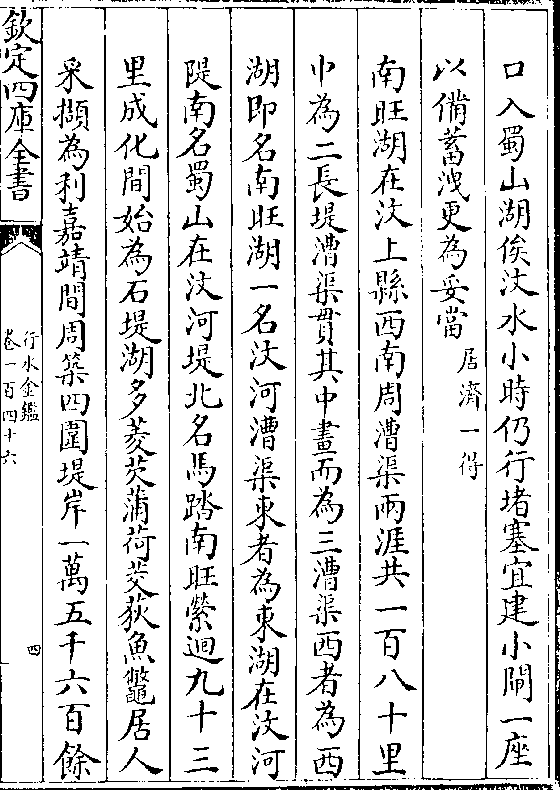 口入蜀山湖俟汶水小時仍行堵塞宜建小閘一座
以備蓄洩更為妥當居濟一得
南旺湖在汶上縣西南周漕渠兩涯共一百八十里
中為二長堤漕渠貫其中畫而為三漕渠西者為西
湖即名南旺湖一名汶河漕渠東者為東湖在汶河
隄南名蜀山在汶河堤北名馬踏南旺縈迴九十三
里成化間始為石堤湖多菱芡蒲荷茭荻魚鼈居人
采擷為利嘉靖間周築四圍堤岸一萬五千六百餘
欽定四庫全書
行水金鑑
卷一百四十六
四